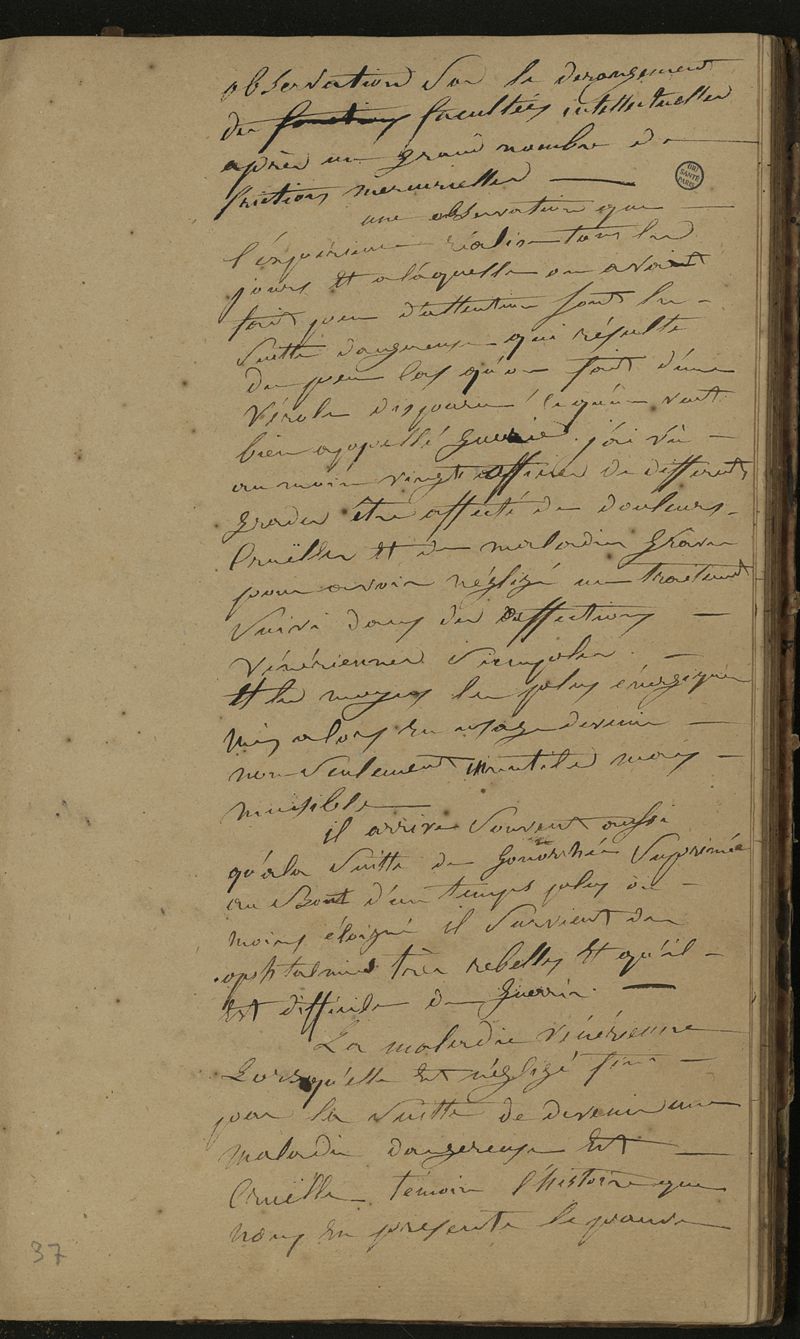 observation Sur le derangement
des fonctions facultées intellectuelles
après un grand nombre de
frictions mercurielles
BIU
SANTE
PARIS
une observation que
l'expérience réalise tous les
jours Et a laquelle on avoit
fait peu d'attention sont les
Suitte dangereuse qui résulte
du peu cas qu'on fait d'une
vérole disparue qu'on veut
bien appellé Guerie. j'ai vû
au moin vingt officier de different
Grades être affecté de douleurs
Cruëlles Et de maladies Grave
pour avoir négligé un traitement
Suivi dans des affections
vénériennes Simples.
Et les moyens les plus énergiques
mis alors En usage devenir
non Seulement inutiles mais
nuisible
il arrive Souvent aussi
qu'a la Suitte de Gonorrhée Suprimée
au Bout d'un temps plus ou
moins éloigné il Survient des
opshtalmies très rebelles Et qu'il
Est difficile de Guerrir.
La maladie vénérienne
Lorsqu'elle Est négligé fini
par la Suitte de devenir une
maladie dangereuse Et
Cruëlle temoin l'histoire que
nous En présente le pauvre
37